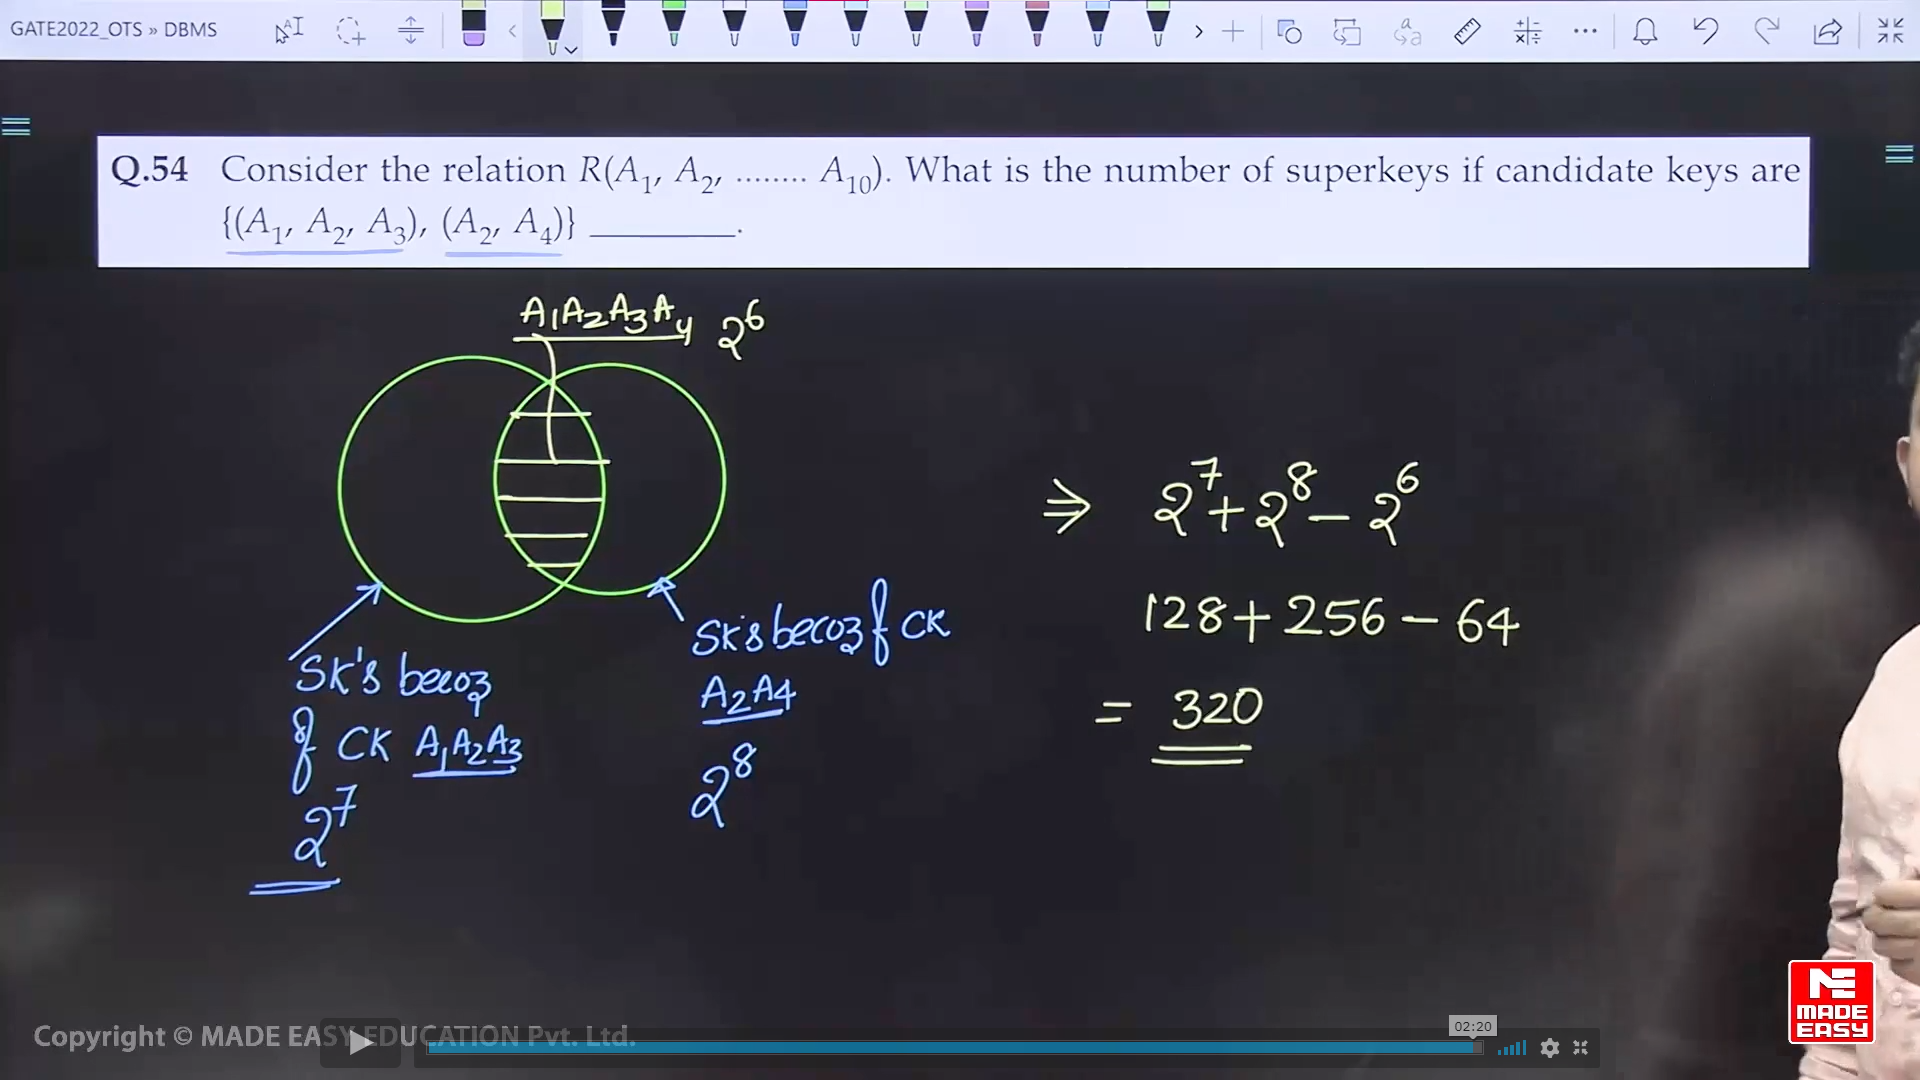 GATE2022_OTS » DBMS
Q.54 Consider the relation R(A1, A2, ........ A10). What is the number of superkeys if candidate keys are
{(A1, A2, A3), (A2, A4)} ________.
A1A2A3A4 2^6
⇒ 2^7 + 2^8 - 2^6
128 + 256 - 64
= 320
SK's becoz
of CK A1A2A3
2^7
SK's becoz of CK
A2A4
2^8
Copyright © MADE EASY EDUCATION Pvt. Ltd.
02:20
ME
MADE
EASY